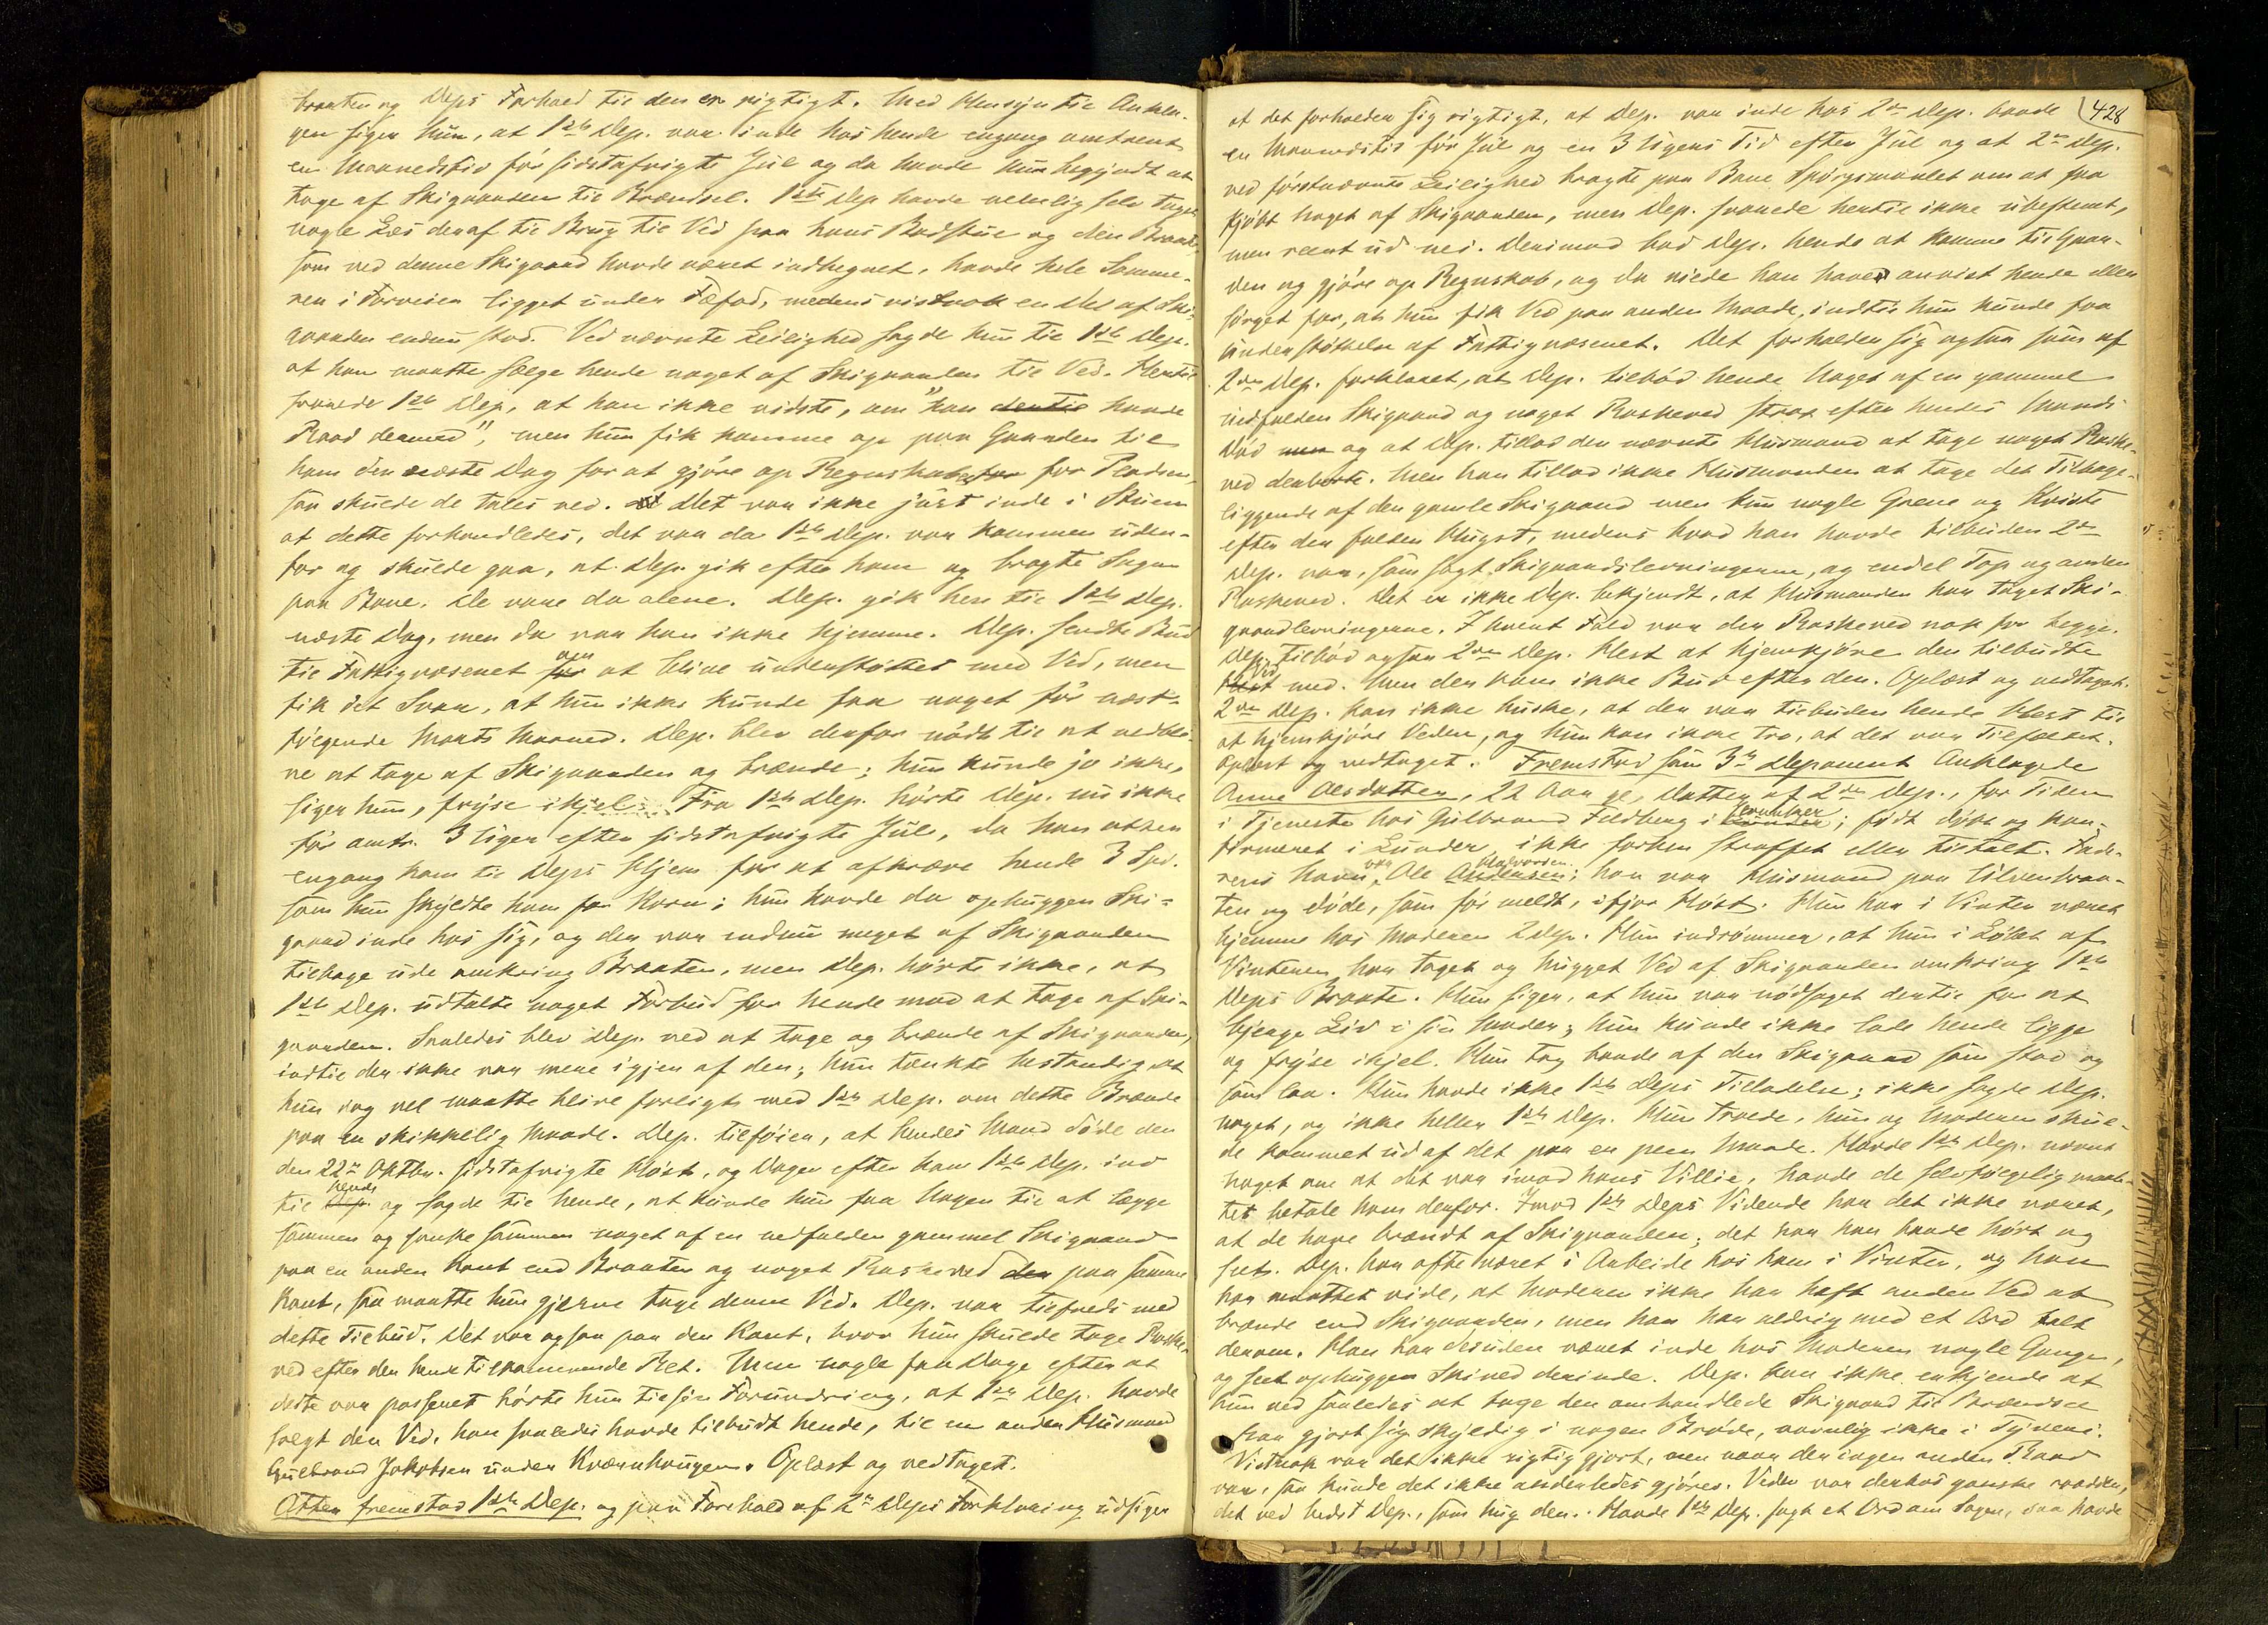 braaten og Deps Forhold til den er rigtigt. Med Hensyn til Anklen-
gen siger hun, at 1ste Dep. var inde hos hende engang omtrent
en Maanedstid før sidstafvigte Jul og da havde hun begyndt at
tage af Skigaarden til Brændsel. 1ste Dep havde nemlig selv taget
nogle Læs deraf til Brug til Ved paa hans Badstue og den Braate,
som ved denne Skigaard havde været indhegnet, havde hele Somme-
ren i Forveien ligget under Fæfod, medens vistnok en Del af Ski-
gaarden endnu stod. Ved nævnte Leilighed sagde hun til 1ste Dep.
at han maatte sælge hende noget af Skigaarden til Ved. Hertil
svarede 1ste Dep, at han ikke vidste, om "han dertil havde
Raad dermed", men hun fik komme op paa Gaarden til
ham den næste Dag for at gjøre op Regnskab for Pladsen,
saa skulde de tales ved. Det var ikke just inde i Stuen
at dette forhandledes, det var da 1ste Dep. var kommen uden-
for og skulde gaa, at Dep. gik efter ham og bragte Sagen
paa Bane. De vare da alene. Dep. gik hen til 1ste Dep.
næste Dag, men da var han ikke hjemme. Dep. sendte Bud
til Fattigvæsenet om at blive understøttet med Ved, men
fik det Svar, at hun ikke kunde faa noget før næst-
følgende Marts Maaned. Dep. blev derfor nødt til at vedbli-
ve at tage af Skigaarden og brænde; hun kunde jo ikke,
siger hun, fryse ihjel. Fra 1ste Dep. hørte Dep. nu ikke
før omtr. 3 Uger efter sidstafvigte Jul, da han atter
engang kom til Deps Hjem for at afkræve hende 3 Spd.
som hun skyldte ham for Korn; hun havde da ophuggen Ski-
gaard inde hos sig, og der var endnu meget af Skigaarden
tilbage ude omkring Braaten, men Dep. hørte ikke, at
1ste Dep. udtalte noget Forbud for hende mod at tage af Ski-
gaarden. Saaledes blev Dep. ved at tage og brænde af Skigaarden,
indtil der ikke var mere igjen af den; hun tænkte bestandig at
hun nog vel maatte blive forligt med 1ste Dep. om dette Brænde
paa en skikkelig Maade. Dep. tilføier, at hendes Mand døde den
den 22de Oktbr. sidstafvigte Høst, og Dagen efter kom 1ste Dep. ind
til hende og sagde til hende, at kunde hun faa Nogen til at lægge
sammen og sanke sammen noget af en nedfalden gammel Skigaard
paa en anden Kant end Braaten og noget Raskeved der paa samme
Kant, saa maatte hun gjerne tage denne Ved. Dep. var tilfreds med
dette Tilbud. Det var ogsaa paa den Kant, hvor hun skulde tage Raske-
ved efter den hende tilkommende Ret. Men nogle faa Dage efter at
dette var passeret hørte hun til sin Forundring, at 1ste Dep. havde
solgt den Ved, han saaledes havde tilbudt hende, til en anden Husmand
Gulbrand Jakobsen under Kværnhaugen. Oplæst og vedtaget.
Atter fremstod 1ste Dep. og paa Forehold af 2den Deps Forklaring udsiger
428
at det forholder sig rigtigt, at Dep. var inde hos 2den Dep. baade
en Maanedstid før Jul og en 3 Ugers Tid efter Jul og at 2den Dep.
ved førstnævnte Leilighed bragte paa Bane Spørgsmaalet om at faa
kjøbt noget af Skigaarden, men Dep. svarede hertil ikke ubestemt,
men reent ud nei. Derimod bad Dep. hende at komme til Gaar-
den og gjøre op Regnskab, og da vilde han have anvist hende eller
sørget for, at hun fik Ved paa anden Maade, indtil hun kunde faa
Understøttelse af Fattigvæsenet. Det forholder sig ogsaa som af
2den Dep. forklaret, at Dep. tilbød hende Noget af en gammel
nedfalden Skigaard og noget Raskeved strax efter hendes Mands
Død og at Dep. tillod den nævnte Husmand at tage noget Raske-
ved derborte. Men han tillod ikke Husmanden at tage det Tilbage-
liggende af den gamle Skigaard men kun nogle Grene og Kviste
efter den faldne Hugst, medens hvad han havde tilbuden 2den
Dep. var, som sagt Skigaardslevningerne, og endel Top og anden
Raskeved. Det er ikke Dep. bekjendt, at Husmanden har taget Ski-
gaardlevningerne. I hvert Fald var der Raskeved nok for begge.
Dep. tilbød ogsaa 2den Dep. Hest at hjemkjøre den tilbudte
Ved med. Men der kom ikke Bud efter den. Oplæst og vedtaget.
2den Dep. kan ikke huske, at der var tilbuden hende Hest til
at hjemkjøre Veden, og hun kan ikke tro, at det var Tilfældet.
Oplæst og vedtaget. Fremstod som 3die Deponent Anklagede
Anne Olsdatter, 22 Aar gl, Datter af 2den Dep., for Tiden
i Tjeneste hos Gulbrand Foldberg i Jevnaker; født døbt og kon-
firmeret i Lunder, ikke forhen straffet eller tiltalt. Fade-
rens Navn var Ole Halvorsen; han var Husmand paa Ulvenbraa-
ten og døde, som før meldt, ifjor Høst. Hun har i Vinter været
hjemme hos Moderen 2 Dep. Hun indrømmer, at hun i Løbet af
Vinteren har taget og hugget Ved af Skigaarden omkring 1ste
Deps Braate. Hun siger, at hun var nødsaget dertil for at
bjerge Liv i sin Moder; hun kunde ikke lade hende ligge
og fryse ihjel. Hun tog baade af den Skigaard som stod og
som laa. Hun havde ikke 1ste Deps Tilladelse; ikke sagde Dep.
noget, og ikke heller 1ste Dep. Hun troede, hun og Moderen skul-
de kommet ud af det paa en pen Maade. Havde 1ste Dep. nævnt
noget om at det var imod hans Villie, havde de selvfølgelig maat-
tet betale ham derfor. Imod 1ste Deps Vidende har det ikke været,
at de have brændt af Skigaarden; det har han baade hørt og
seet. Dep. har ofte været i Arbeide hos ham i Vinter, og han
har maattet vide, at Moderen ikke har haft anden Ved at
brænde end Skigaarden, men han har aldrig med et Ord talt
derom. Han har desuden været inde hos Moderen nogle Gange,
og seet ophuggen Skived derinde. Dep. kan ikke erkjende at
hun ved saaledes at tage den omhandlede Skigaard til Brændsel
har gjort sig skyldig i nogen Brøde, navnlig ikke i Tyveri.
Vistnok var det ikke rigtig gjort, men naar der ingen anden Raad
var, saa kunde det ikke anderledes gjøres. Veden var derhos ganske raadden,
det ved bedst Dep., som hug den. Havde 1ste Dep. sagt et Ord om Sagen, saa havde